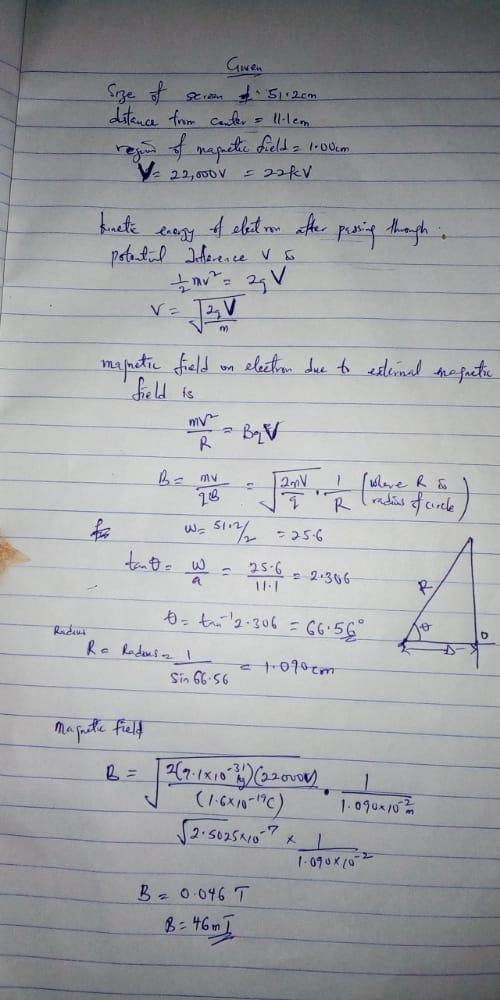 Given
Size of screen = 51.2cm
distance from center = 11.1cm
region of magnetic field = 1.00cm
V = 22,000V = 22kV
Kinetic energy of electron after passing through
potential difference V is
½mv² = 2qV
V = √(2qV/m)
magnetic field on electron due to external magnetic
field is
mv²/R = BqV
B = mv/qB = √(2mV/q) · 1/R (where R is radius of circle)
W = 51.2/2 = 25.6
tanθ = W/a = 25.6/11.1 = 2.306
θ = tan⁻¹2.306 = 66.56°
R
θ
D
O
Radius
R = Radius = 1/Sin 66.56 = 1.090cm
Magnetic field
B = √(2(9.1×10⁻³¹kg)(22000V)/(1.6×10⁻¹⁹C)) · 1/1.090×10⁻²m
√2.5025×10⁻⁷ × 1/1.090×10⁻²
B = 0.046 T
B = 46mT